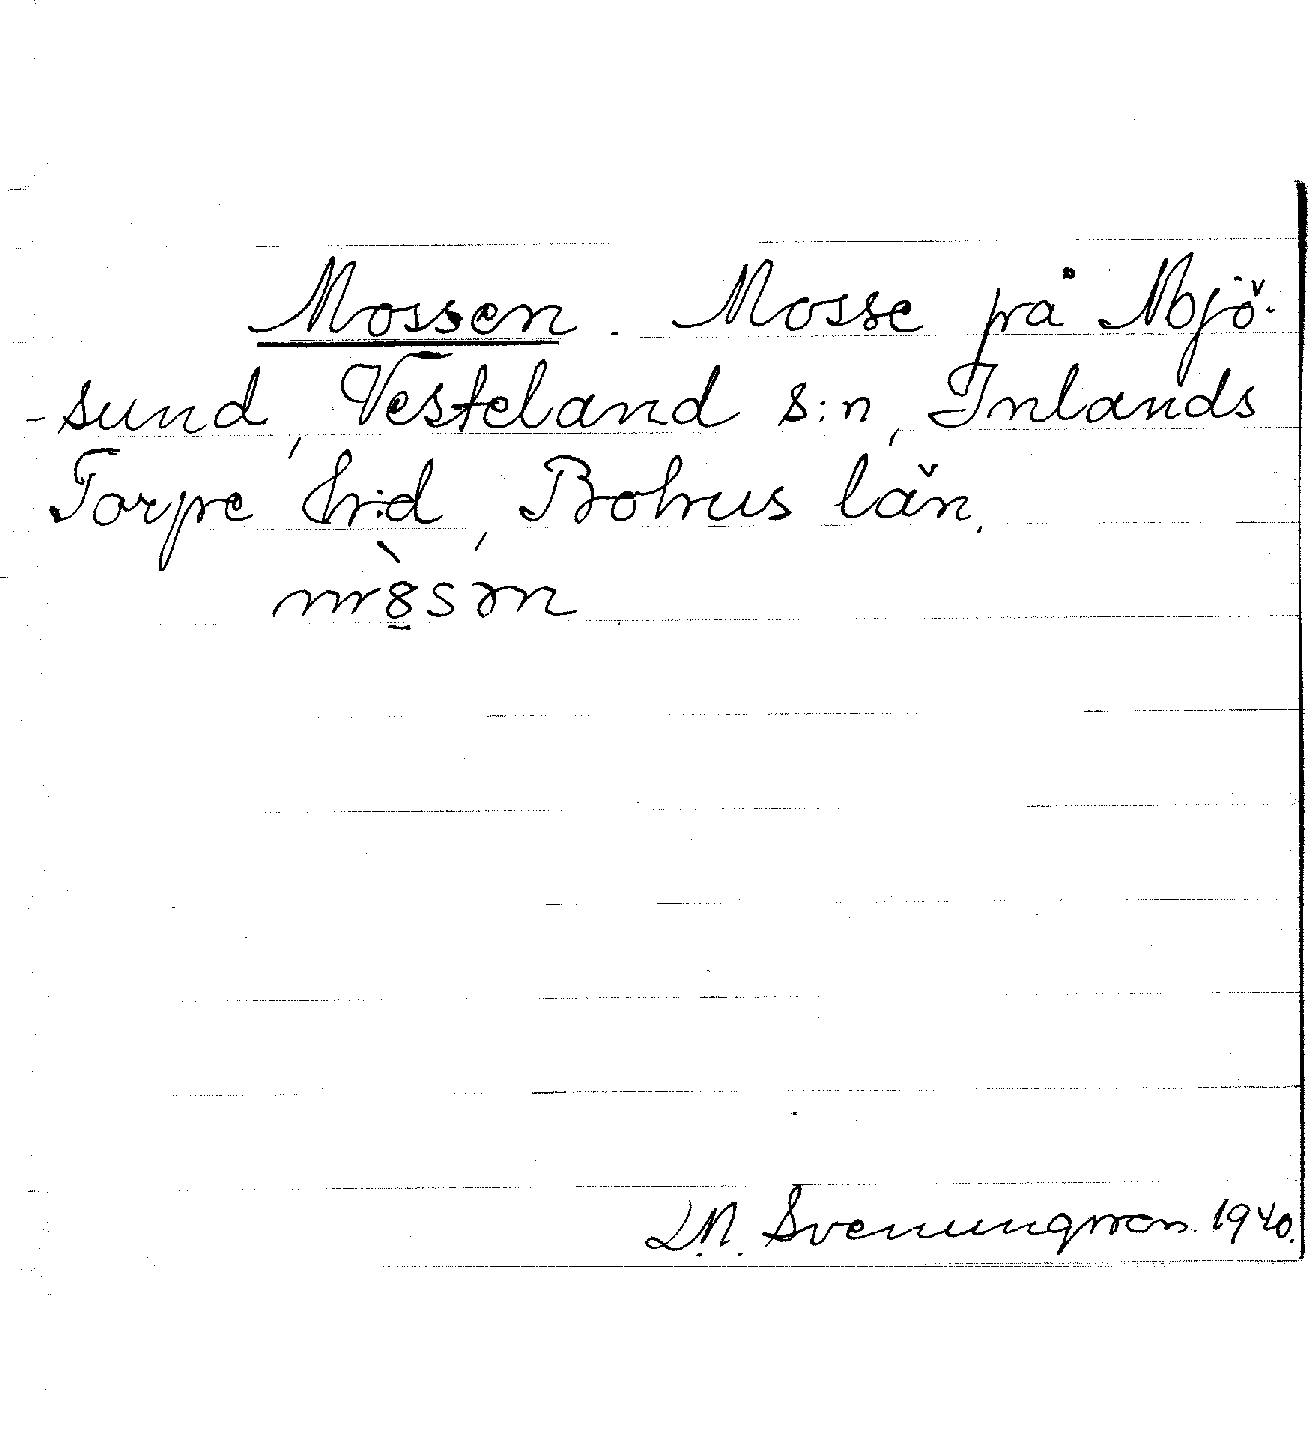 Mossen. Mosse på Mjö-
-sund, Vesteland s:n, Inlands
Torpe hr:d, Bohus län.
m8̲̀sən
L.N. Svenungsson 1940.